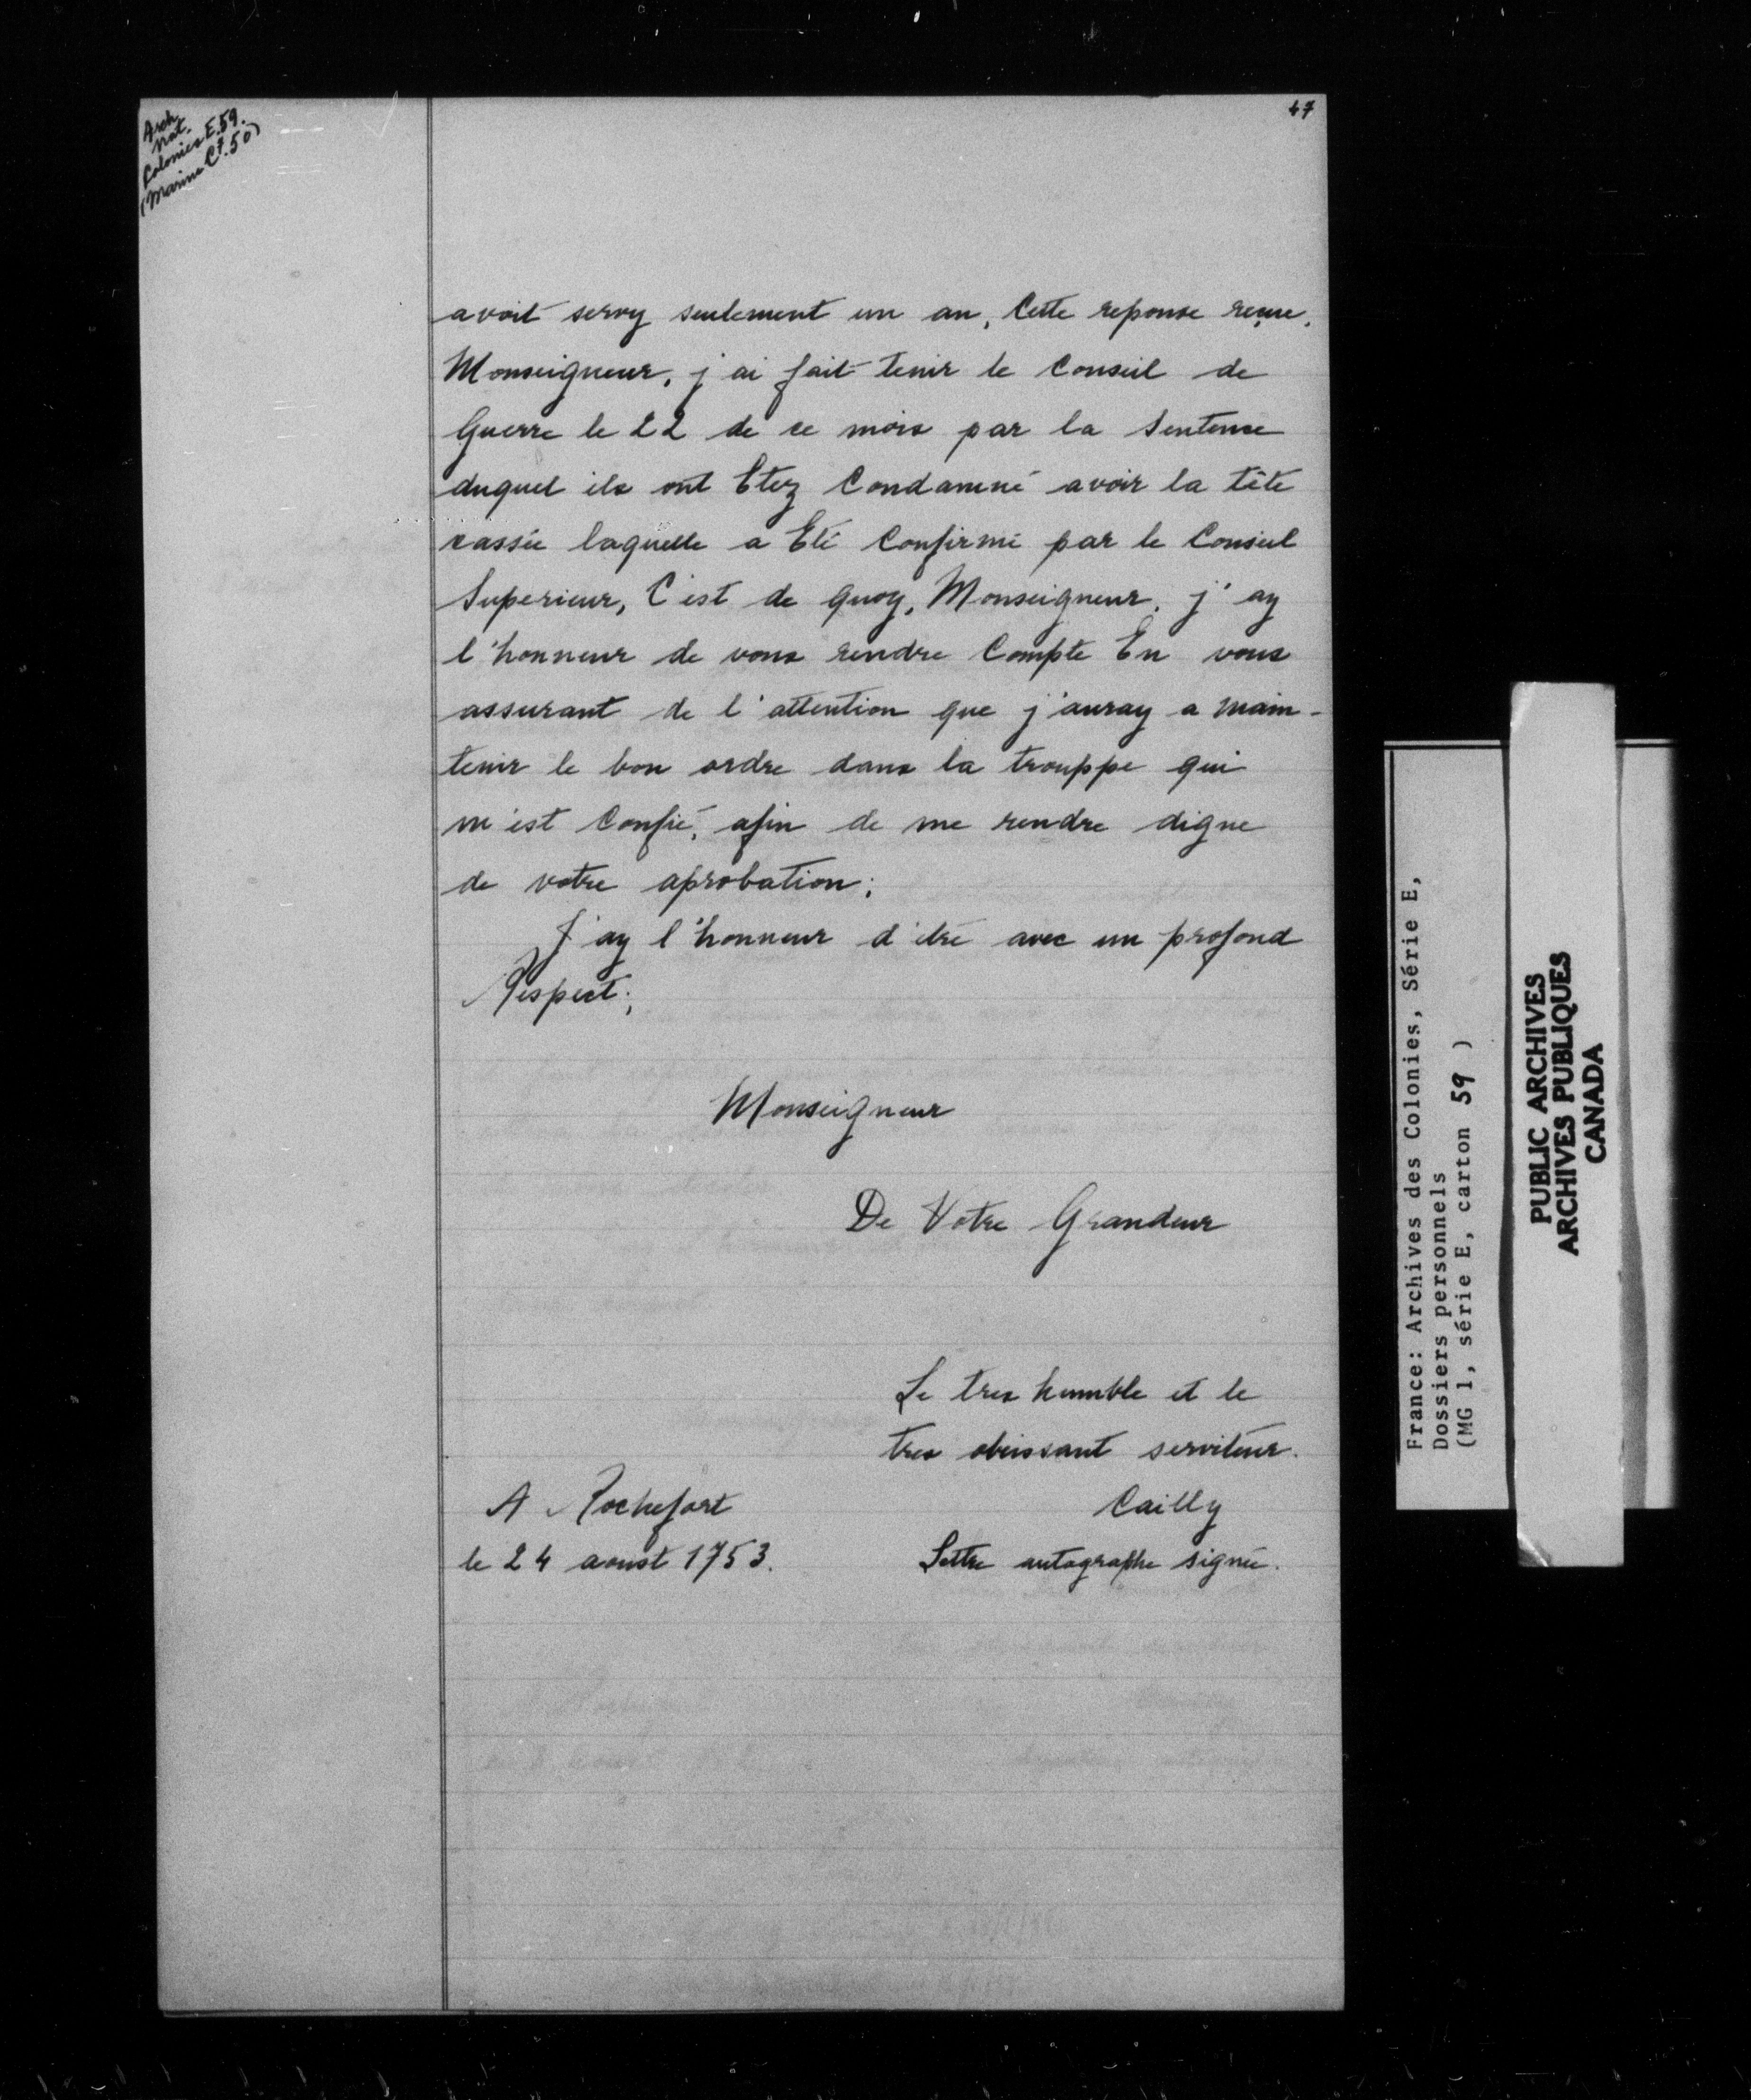 Arch.
Nat.
Colonies E.59.
(Marine C7.50)
47
avoit servy seulement un an, Cette reponse reçue,
Monseigneur, j'ai fait tenir le Conseil de
Guerre le 22 de ce mois par la Sentence
duquel ils ont Etez Condamné avoir la tête
cassée laquelle a Eté Confirmé par le Conseil
Superieur, C'est de quoy, Monseigneur, j'ay
l'honneur de vous rendre Compte En vous
assurant de l'attention que j'auray a main-
tenir le bon ordre dans la trouppe qui
m'est Confié, afin de me rendre digne
de votre aprobation;
J'ay l'honneur d'être avec un profond
Respect;
Monseigneur
De Votre Grandeur
Le tres humble et le
tres obeissant serviteur.
A Rochefort
Cailly
le 24 aoust 1753.
Lettre autographe signée.
France: Archives des Colonies, Série E,
Dossiers personnels
(MG 1, série E, carton 59 )
PUBLIC ARCHIVES
ARCHIVES PUBLIQUES
CANADA